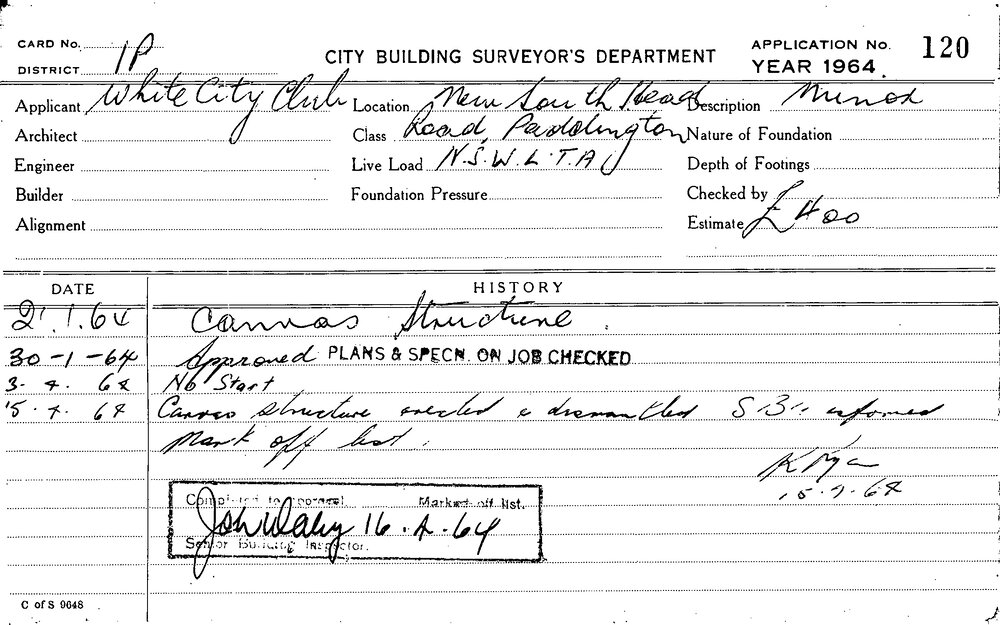 CARD No. 1P
CITY BUILDING SURVEYOR'S DEPARTMENT
APPLICATION No. 120
DISTRICT
YEAR 1964.
Applicant White City Club Location New South Head Description Minor
Architect Class Road, Paddington Nature of Foundation
Engineer Live Load N.S.W.L.T.A Depth of Footings
Builder Foundation Pressure Checked by
Alignment Estimate £400
DATE HISTORY
2'.1.64 Canvas Structure.
30-1-64 Approved PLANS & SPECN. ON JOB CHECKED
3. 4. 64 No Start
15. 4. 64 Canvas structure erected & dismantled S.B.I. informed
Mark off list.
K Ryan
15.4.64
Completed to approval. Marked off list.
John Daley 16.4.64
Senior Building Inspector.
C of S 9648